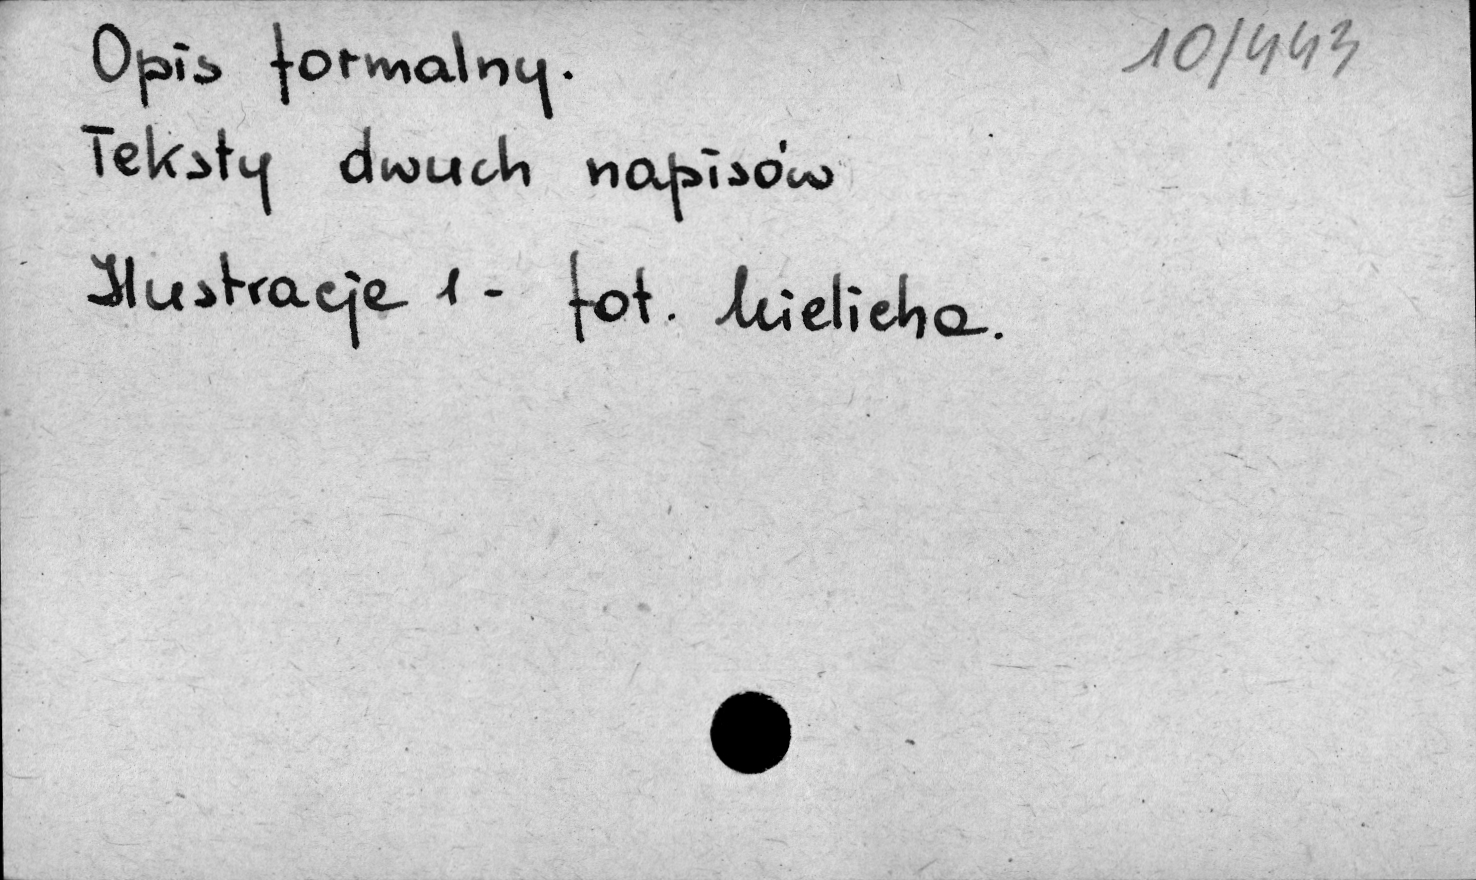 10/443
Opis formalny.
Teksty dwuch napisów
Ilustracje 1 - fot. kielicha.